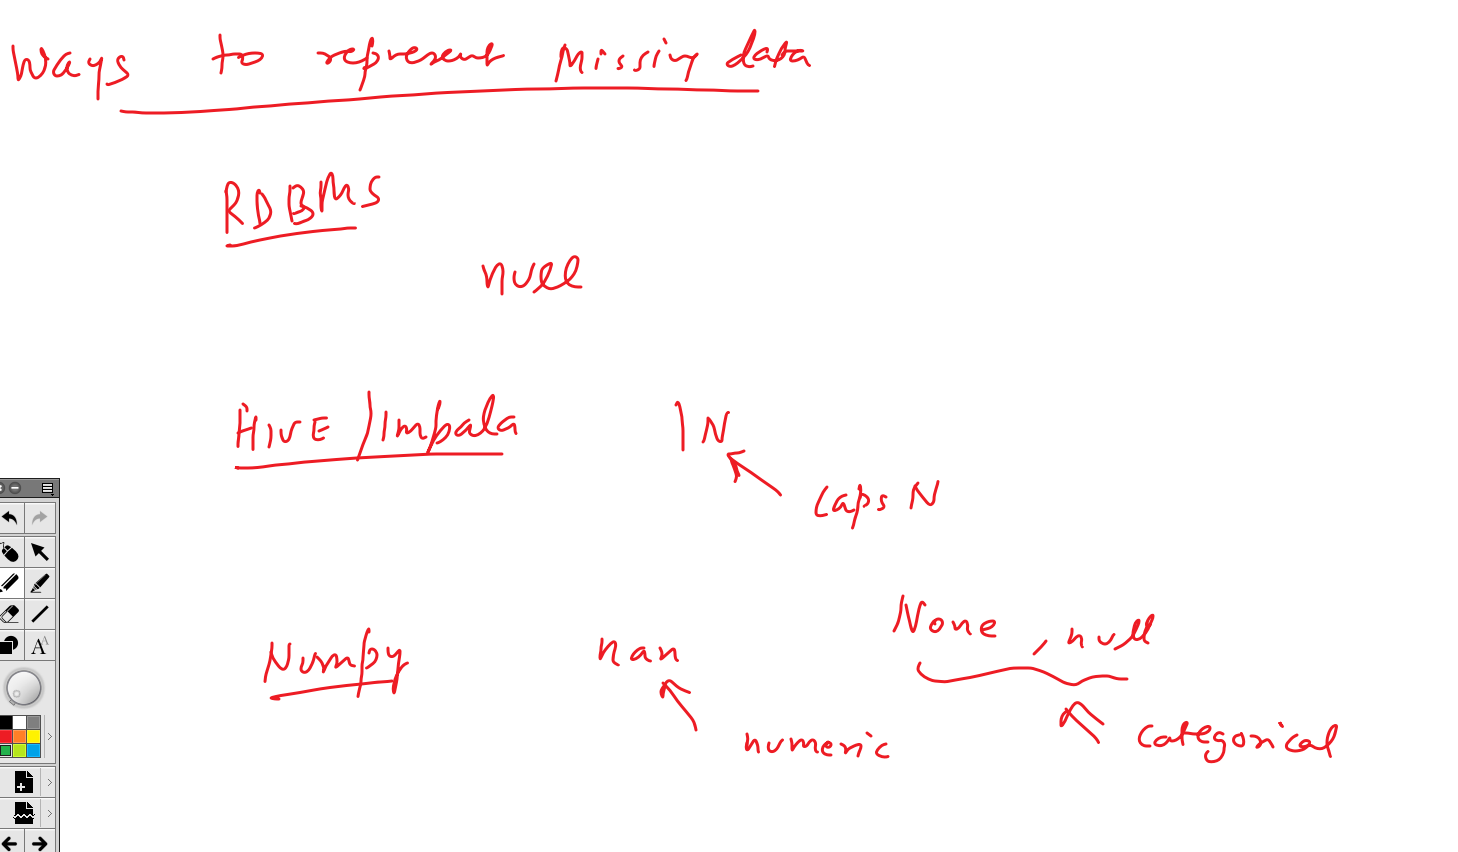 Ways to represent Missing data
RDBMS
null
HIVE / Impala \N
caps N
Numpy nan None , null
numeric categorical